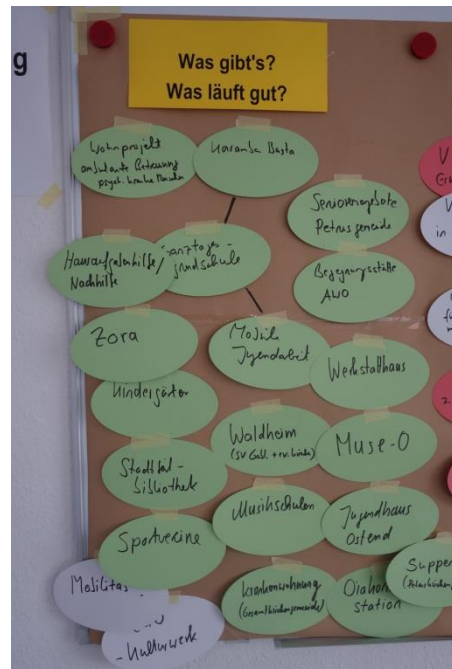 g
Was gibt's?
Was läuft gut?
Wohnprojekt
ambulante Betreuung
psych. kranke Menschen
Havanna Basta
Seniorenangebote
Petrusgemeide
Hausaufgabenhilfe/
Nachhilfe
Ganztages-
grundschule
Begegnungsstätte
AWO
Zora
Mobile
Jugendarbeit
Werkstatthaus
Kindergärten
Waldheim
(SV Gabl. + ev. Kirche)
Muse-O
Stadtteil-
bibliothek
Musikschulen
Jugendhaus
Ostend
Sportvereine
Suppen
Mobilitäts
Krankenwohnung
(Gesamtkirchengemeinde)
Diakonie
station
-Kulturwerk
V
in
2